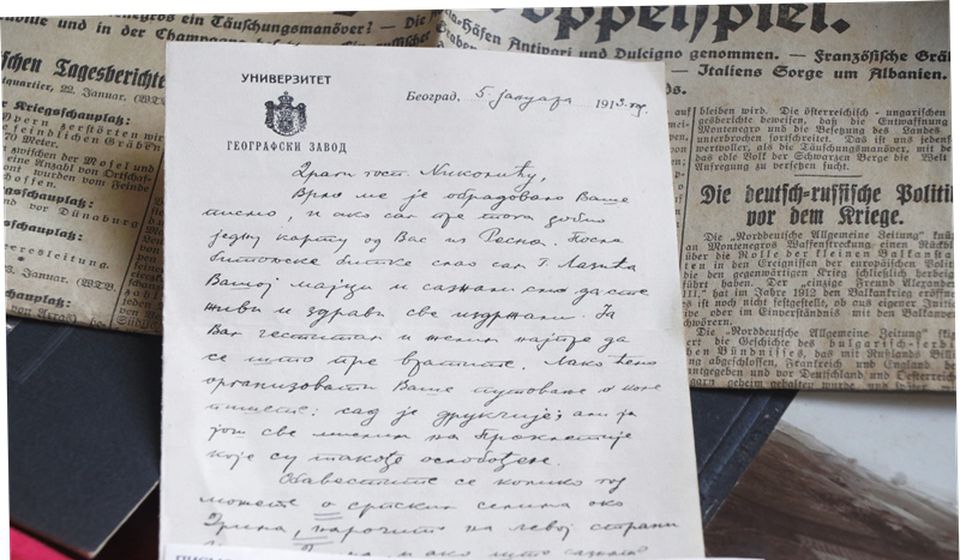 nolle und in der Champagne
Täuschungsmanöver? — Die
schen Tagesberichte
quartier, 22. Januar. (WTB.
Kriegsschauplatz:
Ypern zerstörten wir
feindlichen Gräben
70 Meter.
zwischen der Mosel und
eine Anzahl von Ortschaf-
wurden vom Feinde
schossen.
gsschauplatz:
und vor Dünaburg
schauplatz:
eresleitung.
3. Januar. (WTB.
schauplatz:
УНИВЕРЗИТЕТ
ГЕОГРАФСКИ ЗАВОД
Београд, 5. јануара 1913. год.
Драги госп. Николићу,
Врло ме је обрадовало Ваше
писмо, и ако сам пре тога добио
једну карту од Вас из Ресна. После
битољске битке слао сам Г. Лазића
Вашој мајци и сазнали смо да сте
живи и здрави све издржали. Ја
Вам честитам и желим најпре да
се што пре вратите. Лако ћемо
организовати Ваше путовање о коме
пишете: сад је друкчије; али ја
још све мислим на Проклетије
које су такође ослобођене.
Обавестите се колико год
можете о српским селима око
Дрима, нарочито на левој страни
и ако што сазнате
oppelspiel.
Häfen Antivari und Dulcigno genommen. — Französische Grä
— Italiens Sorge um Albanien.
bleiben wird. Die österreichisch-ungarischen
gesberichte beweisen, daß die Entwaffnung
Montenegros und die Besetzung des Landes
unterbrochen fortschreitet. Das ist uns jedenf
wertvoller, als die Täuschungsmanöver, mit de
das edle Volk der Schwarzen Berge die Welt
Aufregung zu versehen sucht.
Die deutsch-russische Politi
vor dem Kriege.
Die „Norddeutsche Allgemeine Zeitung" knü
an Montenegros Waffenstreckung einen Rückbl
über die Rolle der kleinen Balkansta
ten in den Ereignissen der europäischen Polit
die den gegenwärtigen Krieg schließlich herbeig
führt haben. Der „einzige Freund Alexander
III." hat im Jahre 1912 den Balkankrieg eröffne
es ist noch nicht festgestellt, ob aus eigener Initi
oder im Einverständnis mit den Balkanver
schwörern.
Die „Norddeutsche Allgemeine Zeitung"
die Geschichte des bulgarisch-serbi
schen Bündnisses, das mit Rußlands Bill
gung abgeschlossen, Frankreich und England be
gegeben und vor Deutschland und Oesterreich
garn geheim gehalten wurde